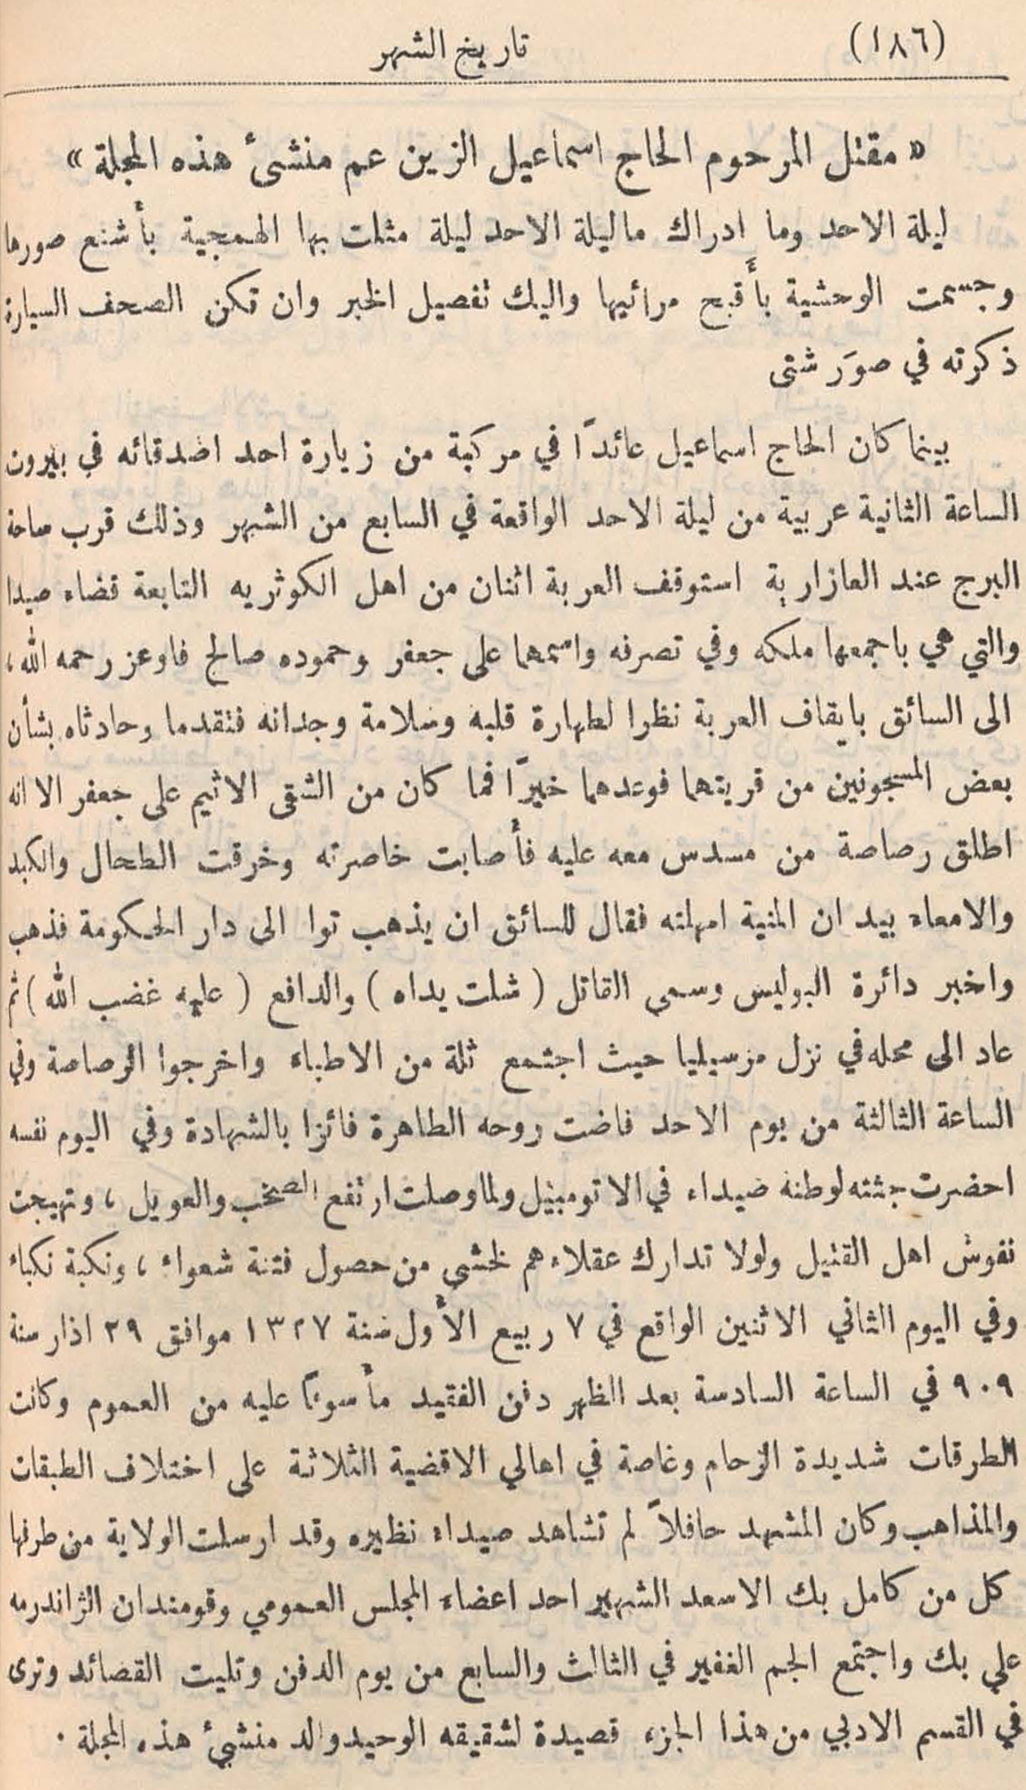 (١٨٦) تاريخ الشهر
« مقتل المرحوم الحاج اسماعيل الزين عم منشئ هذه المجلة »
ليلة الاحد وما ادراك ما ليلة الاحد ليلة مثلت بها الهمجية بأشنع صورها
وجسمت الوحشية بأقبح مرائيها واليك تفصيل الخبر وان تكن الصحف السيارة
ذكرته في صوَر شتى
بينما كان الحاج اسماعيل عائدًا في مركبة من زيارة احد اصدقائه في بيروت
الساعة الثانية عربية من ليلة الاحد الواقعة في السابع من الشهر وذلك قرب ساحة
البرج عند العازارية استوقف العربة اثنان من اهل الكوثريه التابعة قضاء صيدا
والتي هي باجمعها ملكه وفي تصرفه واسمهما علي جعفر وحموده صالح فاوعز رحمه الله ،
الى السائق بايقاف العربة نظرا لطهارة قلبه وسلامة وجدانه فتقدما وحادثاه بشأن
بعض المسجونين من قريتهما فوعدهما خيرًا فما كان من الشقي الاثيم علي جعفر الا انه
اطلق رصاصة من مسدس معه عليه فأصابت خاصرته وخرقت الطحال والكبد
والامعاء بيد ان المنية امهلته فقال للسائق ان يذهب توا الى دار الحكومة فذهب
واخبر دائرة البوليس وسمى القاتل ( شلت يداه ) والدافع ( عليه غضب الله ) ثم
عاد الى محله في نزل مرسيليا حيث اجتمع ثلة من الاطباء واخرجوا الرصاصة وفي
الساعة الثالثة من يوم الاحد فاضت روحه الطاهرة فائزا بالشهادة وفي اليوم نفسه
احضرت جثته لوطنه صيداء في الاتومبيل ولما وصلت ارتفع الصخب والعويل ، وتهيجت
نفوس اهل القتيل ولولا تدارك عقلاءهم لخشي من حصول فتنة شعواء ، ونكبة نكباء
وفي اليوم الثاني الاثنين الواقع في ٧ ربيع الأول سنة ١٣٢٧ موافق ٢٩ اذار سنة
٩٠٩ في الساعة السادسة بعد الظهر دفن الفقيد مأسوفًا عليه من العموم وكانت
الطرقات شديدة الزحام وغاصة في اهالي الاقضية الثلاثة على اختلاف الطبقات
والمذاهب وكان المشهد حافلاً لم تشاهد صيداء نظيره وقد ارسلت الولاية من طرفها
كل من كامل بك الاسعد الشهير احد اعضاء المجلس العمومي وقومندان الژاندرمه
علي بك واجتمع الجم الغفير في الثالث والسابع من يوم الدفن وتليت القصائد وترى
في القسم الادبي من هذا الجزء قصيدة لشقيقه الوحيد والد منشئ هذه المجلة .